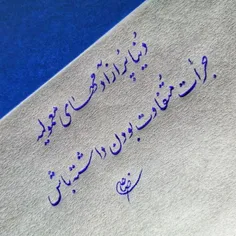 دنیا پر از آدمهای معمولیه
جرأت متفاوت بودن داشته باش